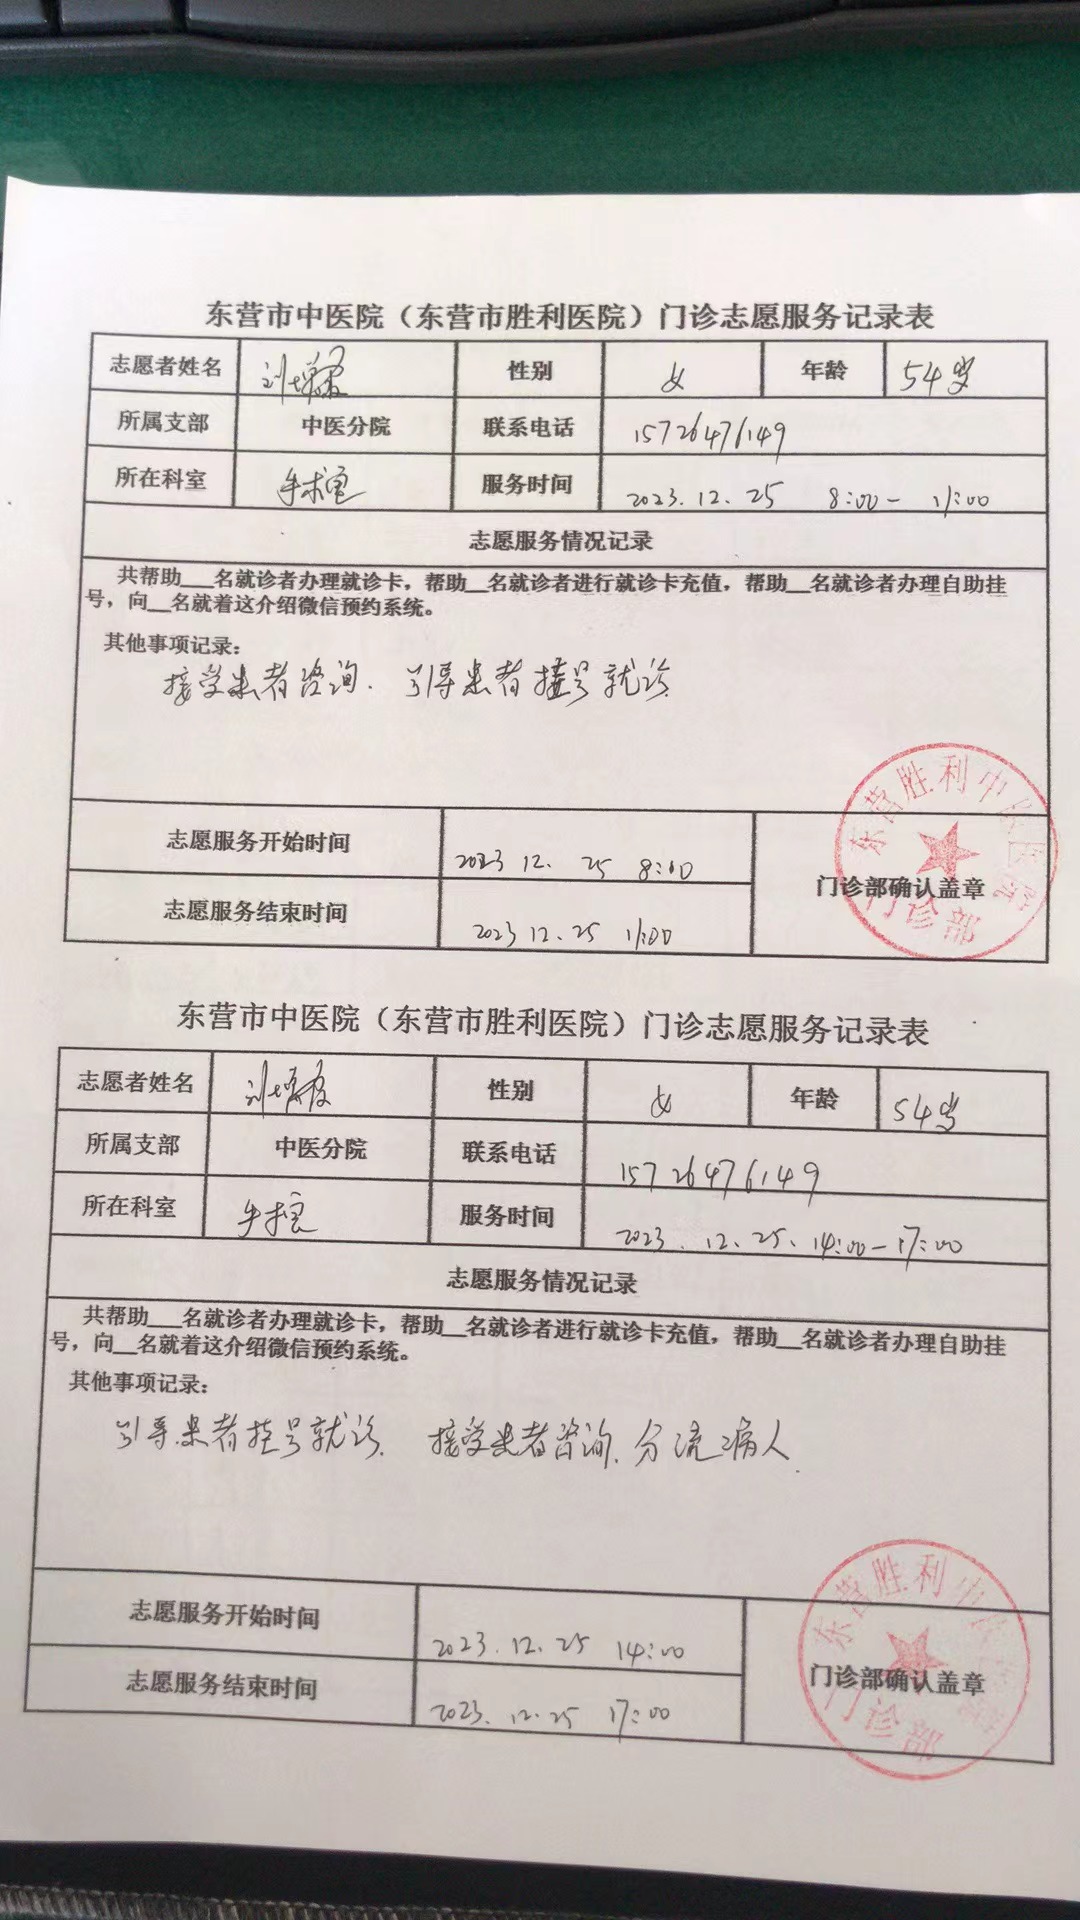 东营市中医院（东营市胜利医院）门诊志愿服务记录表
志愿者姓名 刘 性别 女 年龄 54岁
所属支部 中医分院 联系电话 15726476149
所在科室 手术室 服务时间 2023.12.25 8:00-11:00
志愿服务情况记录
共帮助___名就诊者办理就诊卡，帮助__名就诊者进行就诊卡充值，帮助__名就诊者办理自助挂
号，向__名就着这介绍微信预约系统。
其他事项记录：
接受患者咨询. 引导患者挂号就诊.
志愿服务开始时间 2023 12. 25 8:00
门诊部确认盖章
志愿服务结束时间 2023 12.25 11:00
东营胜利中医医院
门诊部
东营市中医院（东营市胜利医院）门诊志愿服务记录表
志愿者姓名 刘 性别 女 年龄 54岁
所属支部 中医分院 联系电话 15726476149
所在科室 手术室 服务时间 2023.12.25.14:00-17:00
志愿服务情况记录
共帮助___名就诊者办理就诊卡，帮助__名就诊者进行就诊卡充值，帮助__名就诊者办理自助挂
号，向__名就着这介绍微信预约系统。
其他事项记录：
引导患者挂号就诊. 接受患者咨询.分流病人.
志愿服务开始时间 2023.12.25 14:00
门诊部确认盖章
志愿服务结束时间 2023.12.25 17:00
东营胜利中
门诊部